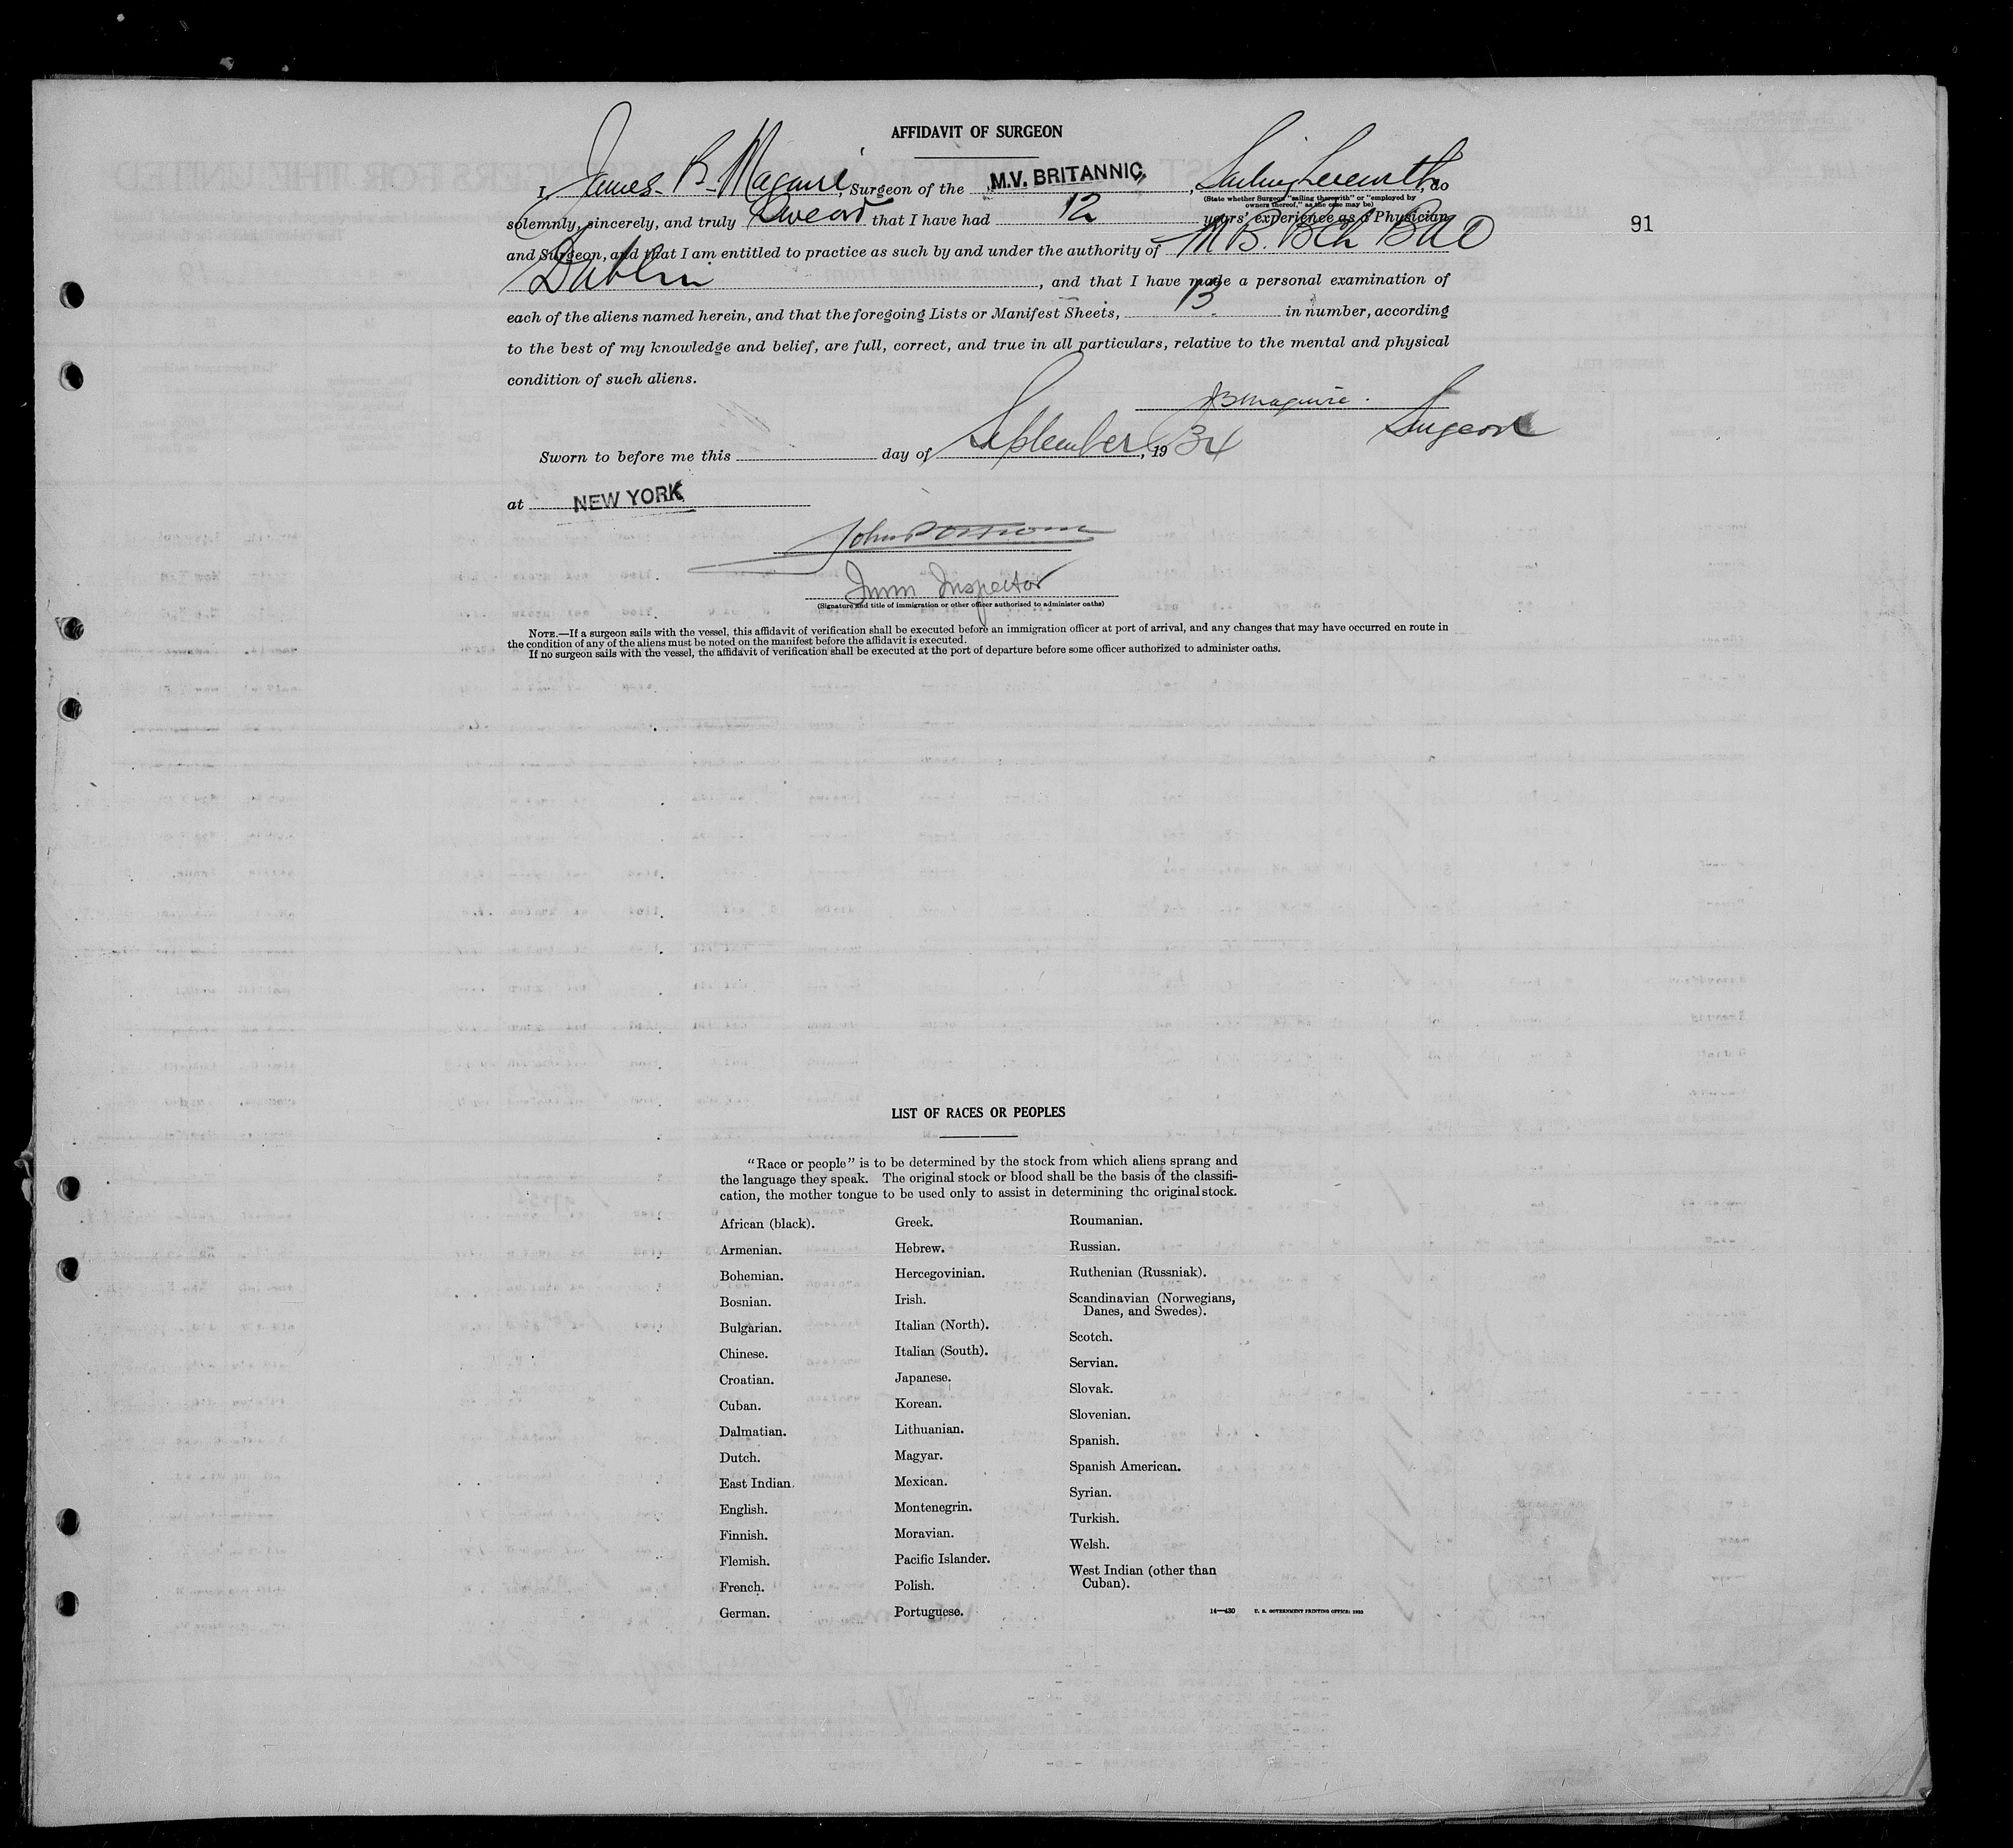 AFFIDAVIT OF SURGEON
I, James B. Maguire, Surgeon of the M.V. BRITANNIC, Sailing therewith, do
(State whether Surgeon "sailing therewith" or "employed by
owners thereof," as the case may be)
solemnly, sincerely, and truly Swear that I have had 12 years' experience as a Physician
and Surgeon, and that I am entitled to practice as such by and under the authority of M B. BCh BAO
Dublin, and that I have made a personal examination of
each of the aliens named herein, and that the foregoing Lists or Manifest Sheets, 13 in number, according
to the best of my knowledge and belief, are full, correct, and true in all particulars, relative to the mental and physical
condition of such aliens.
JBMaguire.
Surgeon
Sworn to before me this day of September, 1934
at NEW YORK
John
Imm Inspector
(Signature and title of immigration or other officer authorized to administer oaths)
NOTE.—If a surgeon sails with the vessel, this affidavit of verification shall be executed before an immigration officer at port of arrival, and any changes that may have occurred en route in
the condition of any of the aliens must be noted on the manifest before the affidavit is executed.
If no surgeon sails with the vessel, the affidavit of verification shall be executed at the port of departure before some officer authorized to administer oaths.
91
LIST OF RACES OR PEOPLES
"Race or people" is to be determined by the stock from which aliens sprang and
the language they speak. The original stock or blood shall be the basis of the classifi-
cation, the mother tongue to be used only to assist in determining the original stock.
African (black).
Armenian.
Bohemian.
Bosnian.
Bulgarian.
Chinese.
Croatian.
Cuban.
Dalmatian.
Dutch.
East Indian.
English.
Finnish.
Flemish.
French.
German.
Greek.
Hebrew.
Hercegovinian.
Irish.
Italian (North).
Italian (South).
Japanese.
Korean.
Lithuanian.
Magyar.
Mexican.
Montenegrin.
Moravian.
Pacific Islander.
Polish.
Portuguese.
Roumanian.
Russian.
Ruthenian (Russniak).
Scandinavian (Norwegians,
Danes, and Swedes).
Scotch.
Servian.
Slovak.
Slovenian.
Spanish.
Spanish American.
Syrian.
Turkish.
Welsh.
West Indian (other than
Cuban).
14—430 U. S. GOVERNMENT PRINTING OFFICE: